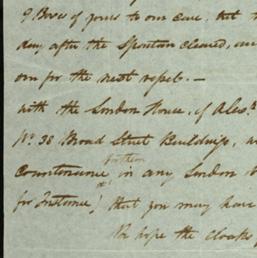 9 Boxes of yours to our Care, but t
day after the Spartan cleared, an
on for the next vessel. —
with the London House, of Alexr.
No. 38 Broad Street Buildings, w
further
Countenance in any London t
for Instance! that you may have
We hope the cloaks